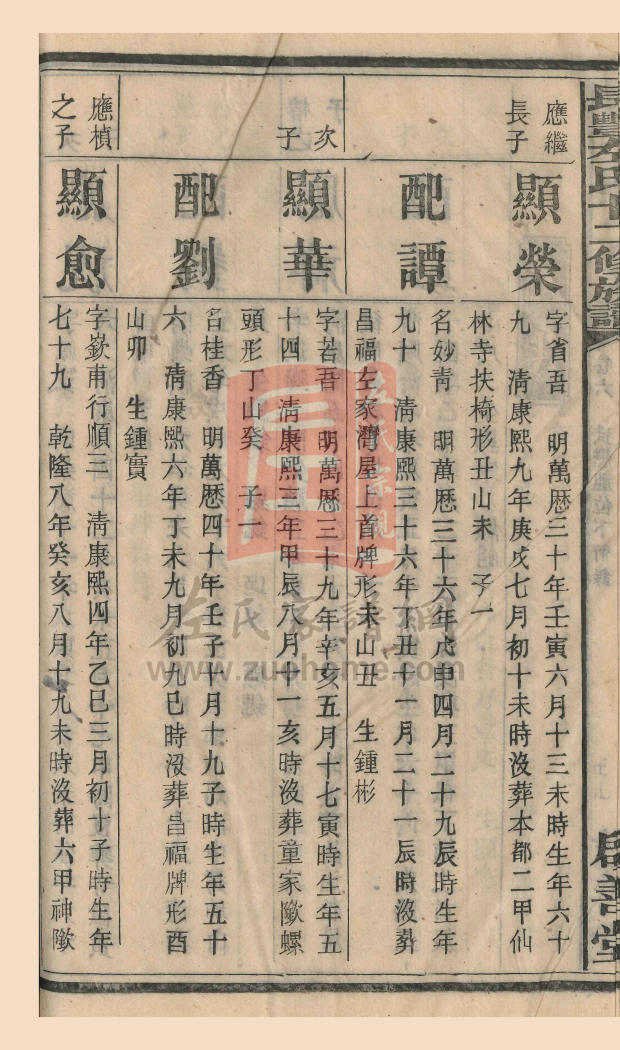 長豐左氏十二修族譜
啟善堂
應繼
長子
顯榮
字省吾 明萬曆三十年壬寅六月十三未時生年六十
九 清康熙九年庚戌七月初十未時沒葬本都二甲仙
林寺扶椅形丑山未 子一
配譚
名妙青 明萬曆三十六年戊申四月二十九辰時生年
九十 清康熙三十六年丁丑十一月二十一辰時沒葬
昌福左家灣屋上首牌形未山丑 生鍾彬
次
子
顯華
字若吾 明萬曆三十九年辛亥五月十七寅時生年五
十四 清康熙三年甲辰八月十一亥時沒葬童家墩螺
頭形丁山癸 子一
配劉
名桂香 明萬曆四十年壬子十月十九子時生年五十
六 清康熙六年丁未九月初九巳時沒葬昌福牌形酉
山卯 生鍾實
應楨
之子
顯愈
字嶔甫行順三 清康熙四年乙巳三月初十子時生年
七十九 乾隆八年癸亥八月十九未時沒葬六甲神墩
左氏宗親
左氏家譜網
www.zuohome.com